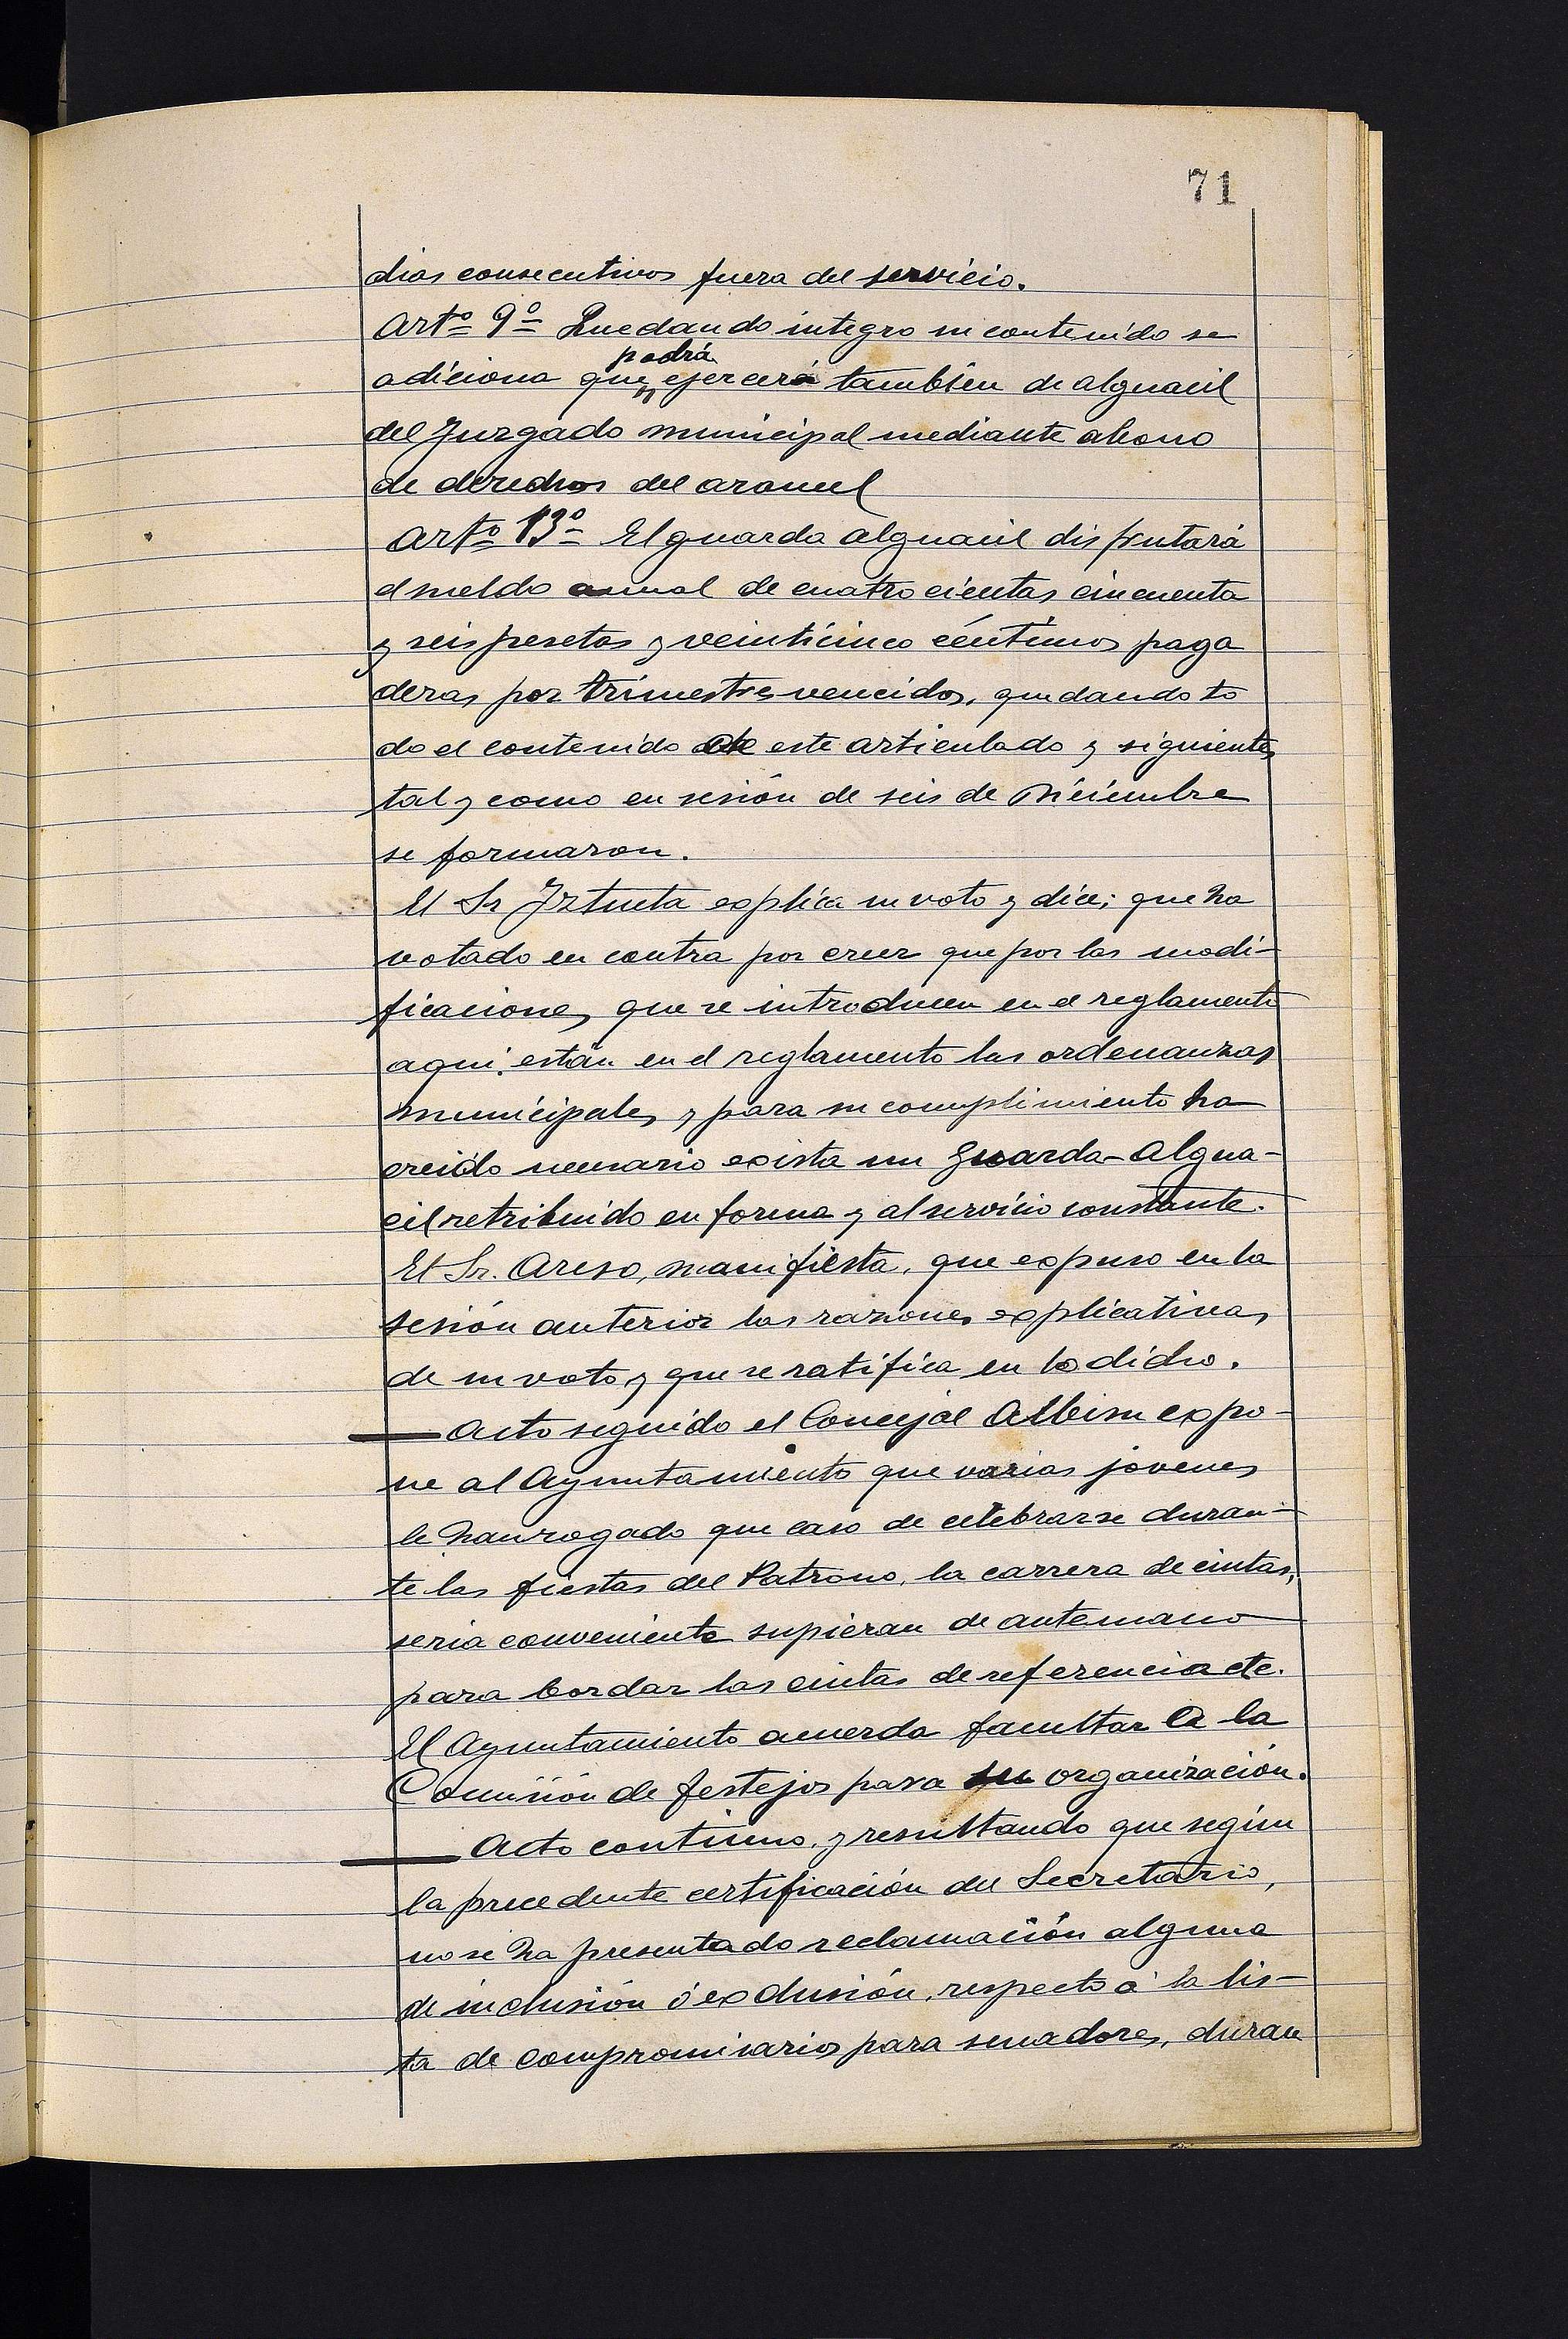 71
dias consecutivos fuera del servicio.
Artº 9º Quedando integro su contenido se
podrá
adiciona que ejercerá tambien de alguacil
del Juzgado municipal mediante abono
de derechos del arancel
Artº 13º El guarda alguacil disfrutará
el sueldo anual de cuatrocientas cincuenta
y seis pesetas y veinticinco céntimos paga
deras por trimestres vencidos, quedando to
do el contenido de este articulado y siguientes
tal y como en sesión de seis de Diciembre
se formaron.
El Sr Iztueta explica su voto y dice; que ha
votado en contra por creer que por las modi-
ficaciones que se introducen en el reglamento
aqui están en el reglamento las ordenanzas
municipales y para su complimiento ha
creido necesario exista un guarda-algua-
cil retribuido en forma y al servicio constante.
El Sr. Areso, manifiesta, que expuso en la
sesión anterior las razones explicativas
de su voto y que se ratifica en lo dicho.
Acto seguido el Concejal Albisu expo-
ne al Ayuntamiento que varias jovenes
le han rogado que caso de celebrarse duran-
te las fiestas del Patrono, la carrera de cintas,
seria conveniente supieran de antemano
para bordar las cintas de referencia etc.
El Ayuntamiento acuerda facultar a la
Comisión de festejos para su organización.
Acto continuo, y resultando que según
la precedente certificación del Secretario,
no se ha presentado reclamación alguna
de inclusión ó exclusión, respecto á la lis-
ta de compromisarios para senadores, duran